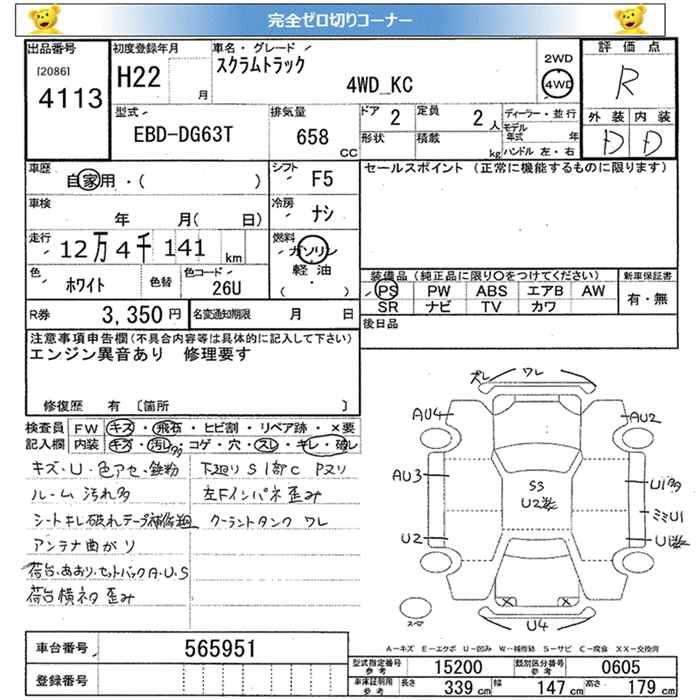 完全ゼロ切りコーナー
出品番号
[2086]
4113
初度登録年月
H22 月
車名・グレード
スクラムトラック
4WD_KC
2WD
4WD
評価点
R
外装 内装
D D
型式
EBD-DG63T
排気量
658 CC
ドア 2
定員 2 人
形状
積載 kg
ディーラー・並行
モデル年式 年
ハンドル 左・右
車歴
自家用・( )
シフト
F5
車検
年 月( 日)
冷房
ナシ
走行
12万4千141 km
燃料
ガソリン
軽油
( )
色
ホワイト
色替
色コード
26U
R券 3,350円
名変通知期限 月 日
セールスポイント (正常に機能するものに限ります)
装備品(純正品に限り○をつけてください)
PS PW ABS エアB AW
SR ナビ TV カワ
新車保証書
有・無
後日品
注意事項申告欄(不具合内容等は具体的に記入して下さい)
エンジン異音あり 修理要す
修復歴 有 〔箇所 〕
検査員記入欄
FW キズ・飛石・ヒビ割・リペア跡・×要
内装 キズ・汚レ多・コゲ・穴・スレ・キレ・破レ
キズ・U・色アセ・鉄粉
下廻りS1部C Pヌリ
ルーム汚れ多
左Fインパネ歪み
シートキレ破れテープ補修過
クーラントタンク ワレ
アンテナ曲がり
荷台・あおり・セットバックA・U・S
荷台横ネタ歪み
ズレ
ワレ
AU4
AU2
AU3
S3
U2
U1多
ミミU1
U2
U4
スマ
A－キズ E－エクボ U－凹ミ W－補修跡 S－サビ C－腐食 XX－交換済
車台番号
565951
登録番号
型式指定番号 参考
15200
類別区分番号 参考
0605
車庫証明用 参考
長さ 339 cm
幅 147 cm
高さ 179 cm